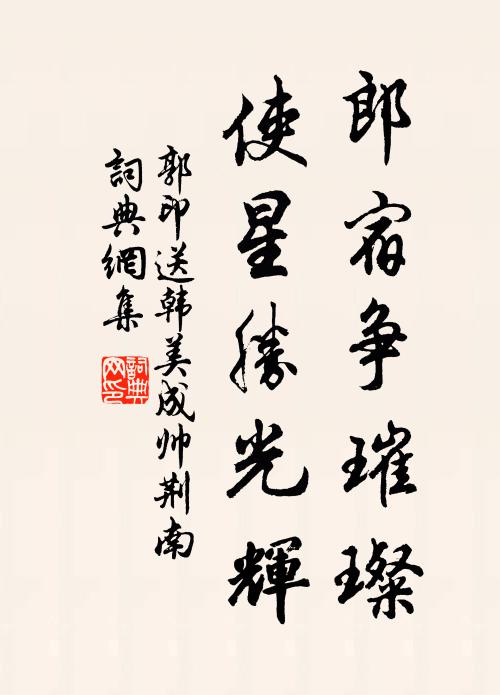 郎宿争璀璨
使星勝光輝
郭印送韩美成帅荆南
詞典網集
詞典网印